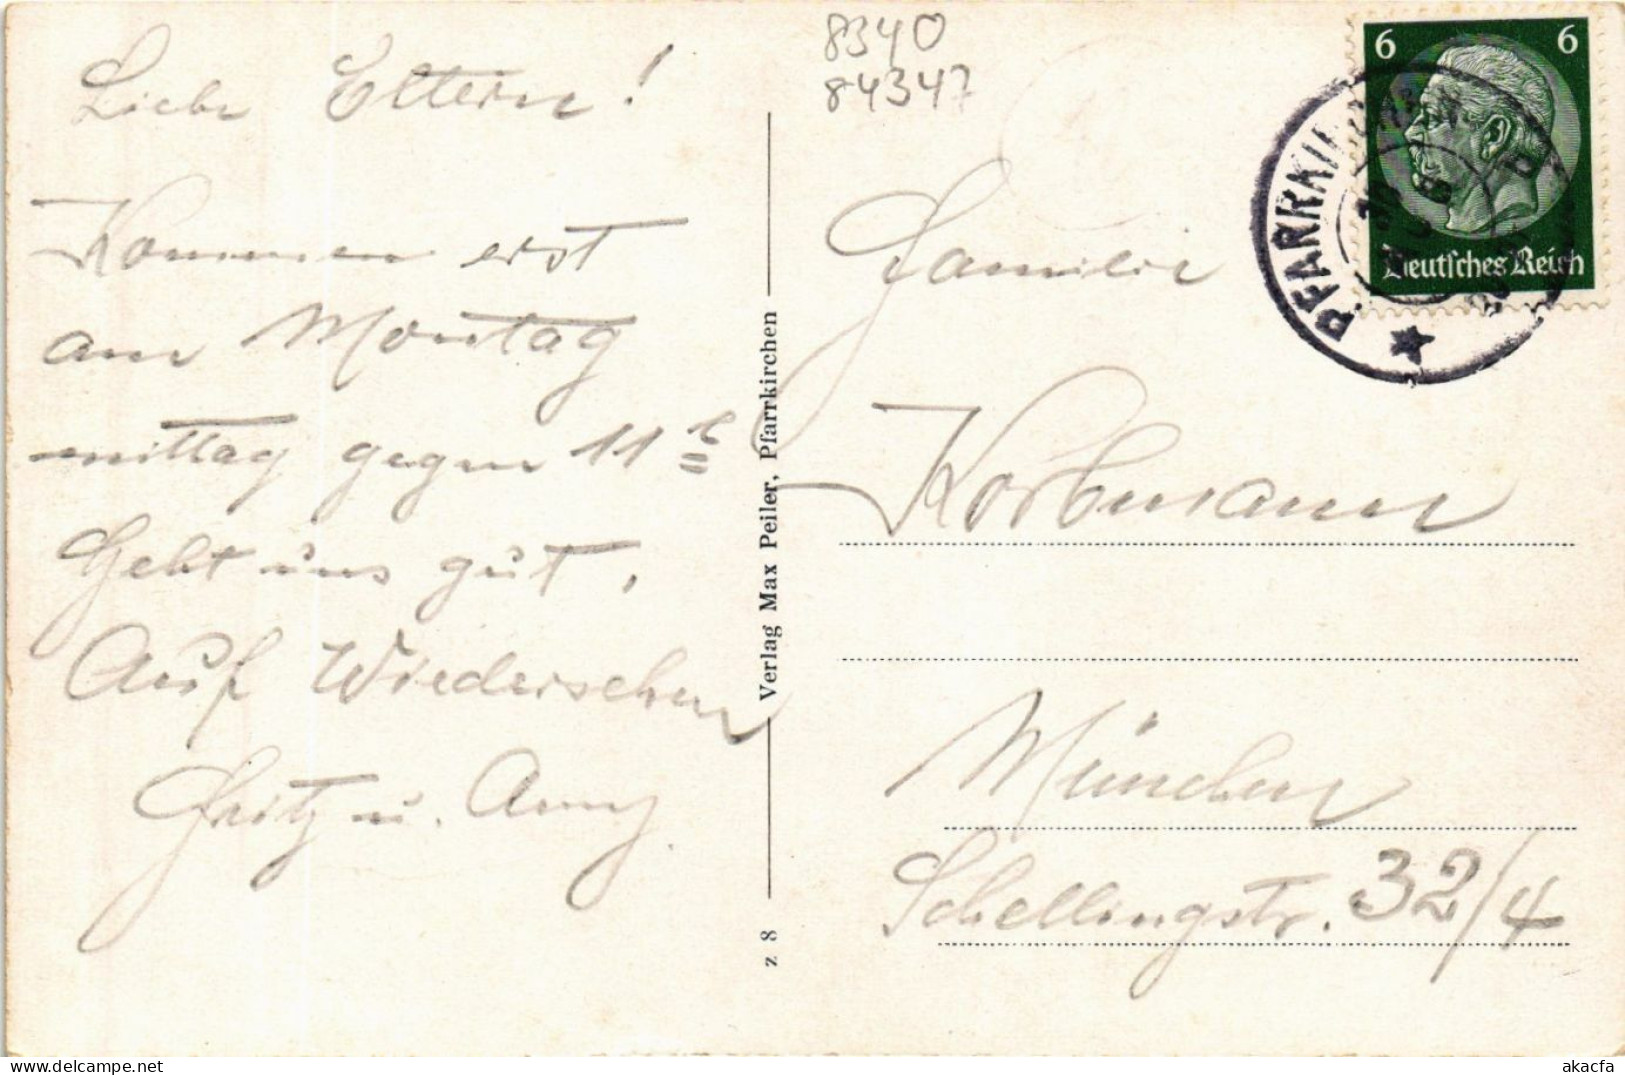 8340
84347
Liebe Eltern!
Kommen erst
am Montag
mittag gegen 11 h
Geht uns gut.
Auf Wiedersehen
Fritz u. Anny
z 8 Verlag Max Peiler, Pfarrkirchen
6 6
Deutsches Reich
PFARRKIRCHEN
Familie
Korbmann
München
Schellingstr. 32/4
akacfa